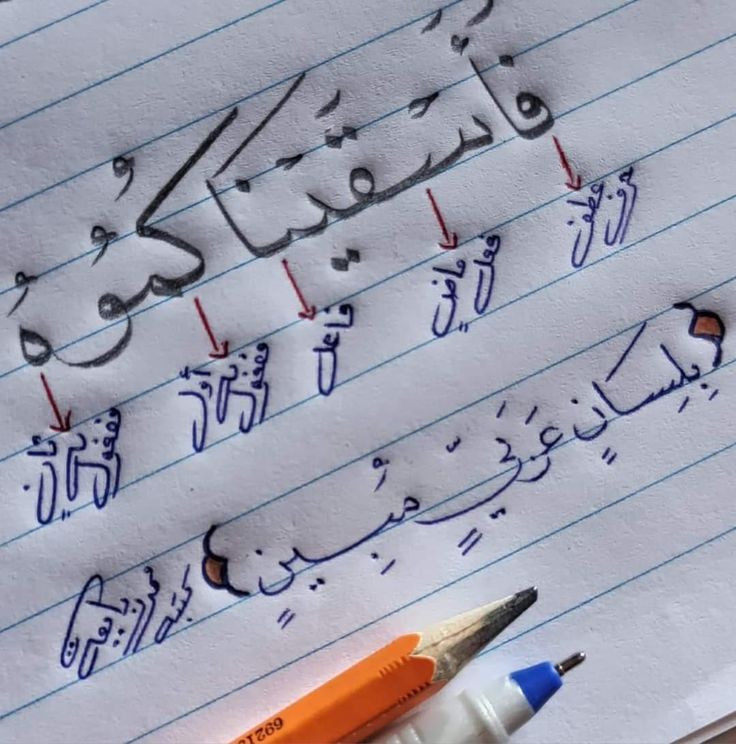 فَأَسْقَيْنَاكُمُوهُ
حرف عطف
فعل ماضٍ
فاعل
مفعول به أول
مفعول به ثان
بِلِسَانٍ عَرَبِيٍّ مُبِينٍ
كتبه
69215